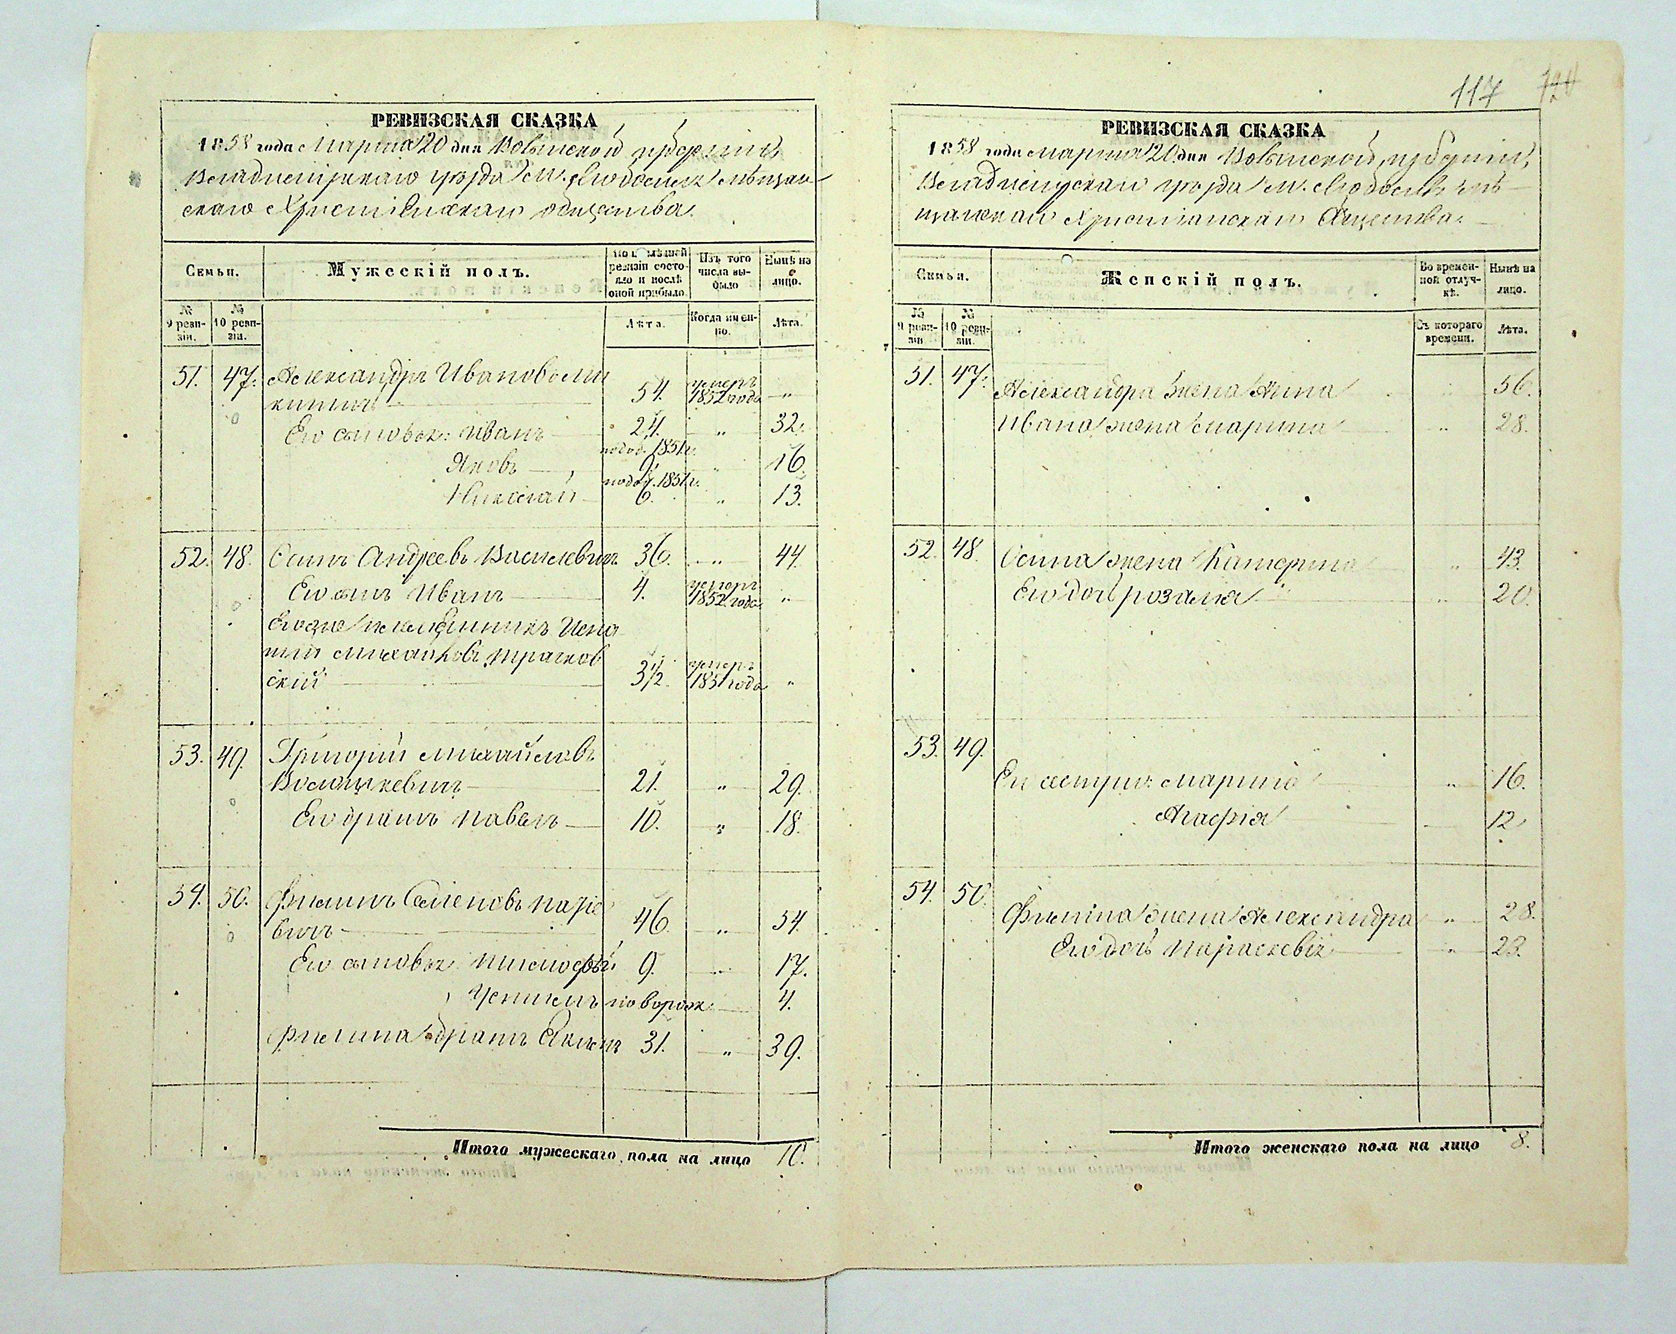 117 120
РЕВИЗСКАЯ СКАЗКА
1858 года Марта 20 дня Волынской губерніи
Владимірскаго уѣзда м. Любомль мѣщан-
скаго Христіанскаго общества.
Семьи.
Мужескій полъ.
По послѣдней ревизіи состояло и послѣ оной прибыло.
Изъ того числа выбыло
Нынѣ на лицо.
№ 9 ревизіи.
№ 10 ревизіи.
Лѣта.
Когда именно.
Лѣта.
51. 47. Александръ Ивановъ
54. умеръ 1852 года "
Его сыновья: Иванъ 24. " 32.
подод. 1851 г.
Яковъ 9. " 16.
подод. 1851 г.
Николай 6. " 13.
52. 48. Осипъ Андреевъ Василевичъ 36. " 44.
Его сынъ Иванъ 4. умеръ 1852 года "
Его же племянникъ Игна
тій Михайловъ
скій 3 1/2 умеръ 1851 года "
53. 49. Григорій Михайловъ
21. " 29.
Его братъ Павелъ 10. " 18.
54. 50. Филипъ Семеновъ
вичъ 46. " 54.
Его сыновья: Тимофей 9. " 17.
4.
Филипа братъ 31. " 39.
Итого мужескаго пола на лицо 10.
РЕВИЗСКАЯ СКАЗКА
1858 года Марта 20 дня Волынской губерніи,
Владимірскаго уѣзда м. Любомль мѣ-
щанскаго Христіанскаго Общества.
Семьи.
Женскій полъ.
Во временной отлучкѣ.
Нынѣ на лицо.
№ 9 ревизіи
№ 10 ревизіи.
Съ котораго времени.
Лѣта.
51. 47. Александра жена Анна " 56.
Ивана жена Марина " 28.
52. 48. Осипа жена Катерина " 43.
Его дочь Розалія " 20.
53. 49.
Ея сестры: Марина " 16.
Агафія 12.
54. 50.
Филипа жена Александра " 28.
Его дочь Параскевія " 23.
Итого женскаго пола на лицо 8.